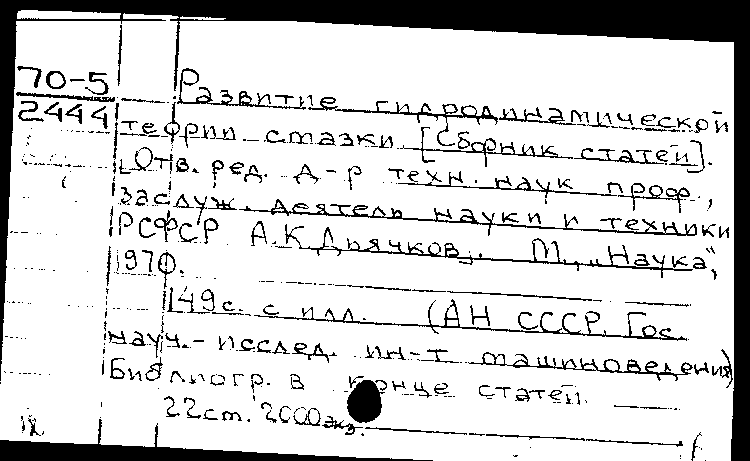 70-5
2444
Развитие гидродинамической
теории смазки [Сборник статей].
Отв. ред. д-р техн. наук проф.,
заслуж. деятель науки и техники
РСФСР А.К. Дьячков. М., „Наука“,
1970.
149 с. с илл. (АН СССР. Гос.
науч.-исслед. ин-т машиноведения)
Библиогр. в конце статей.
22 см. 2000 экз.